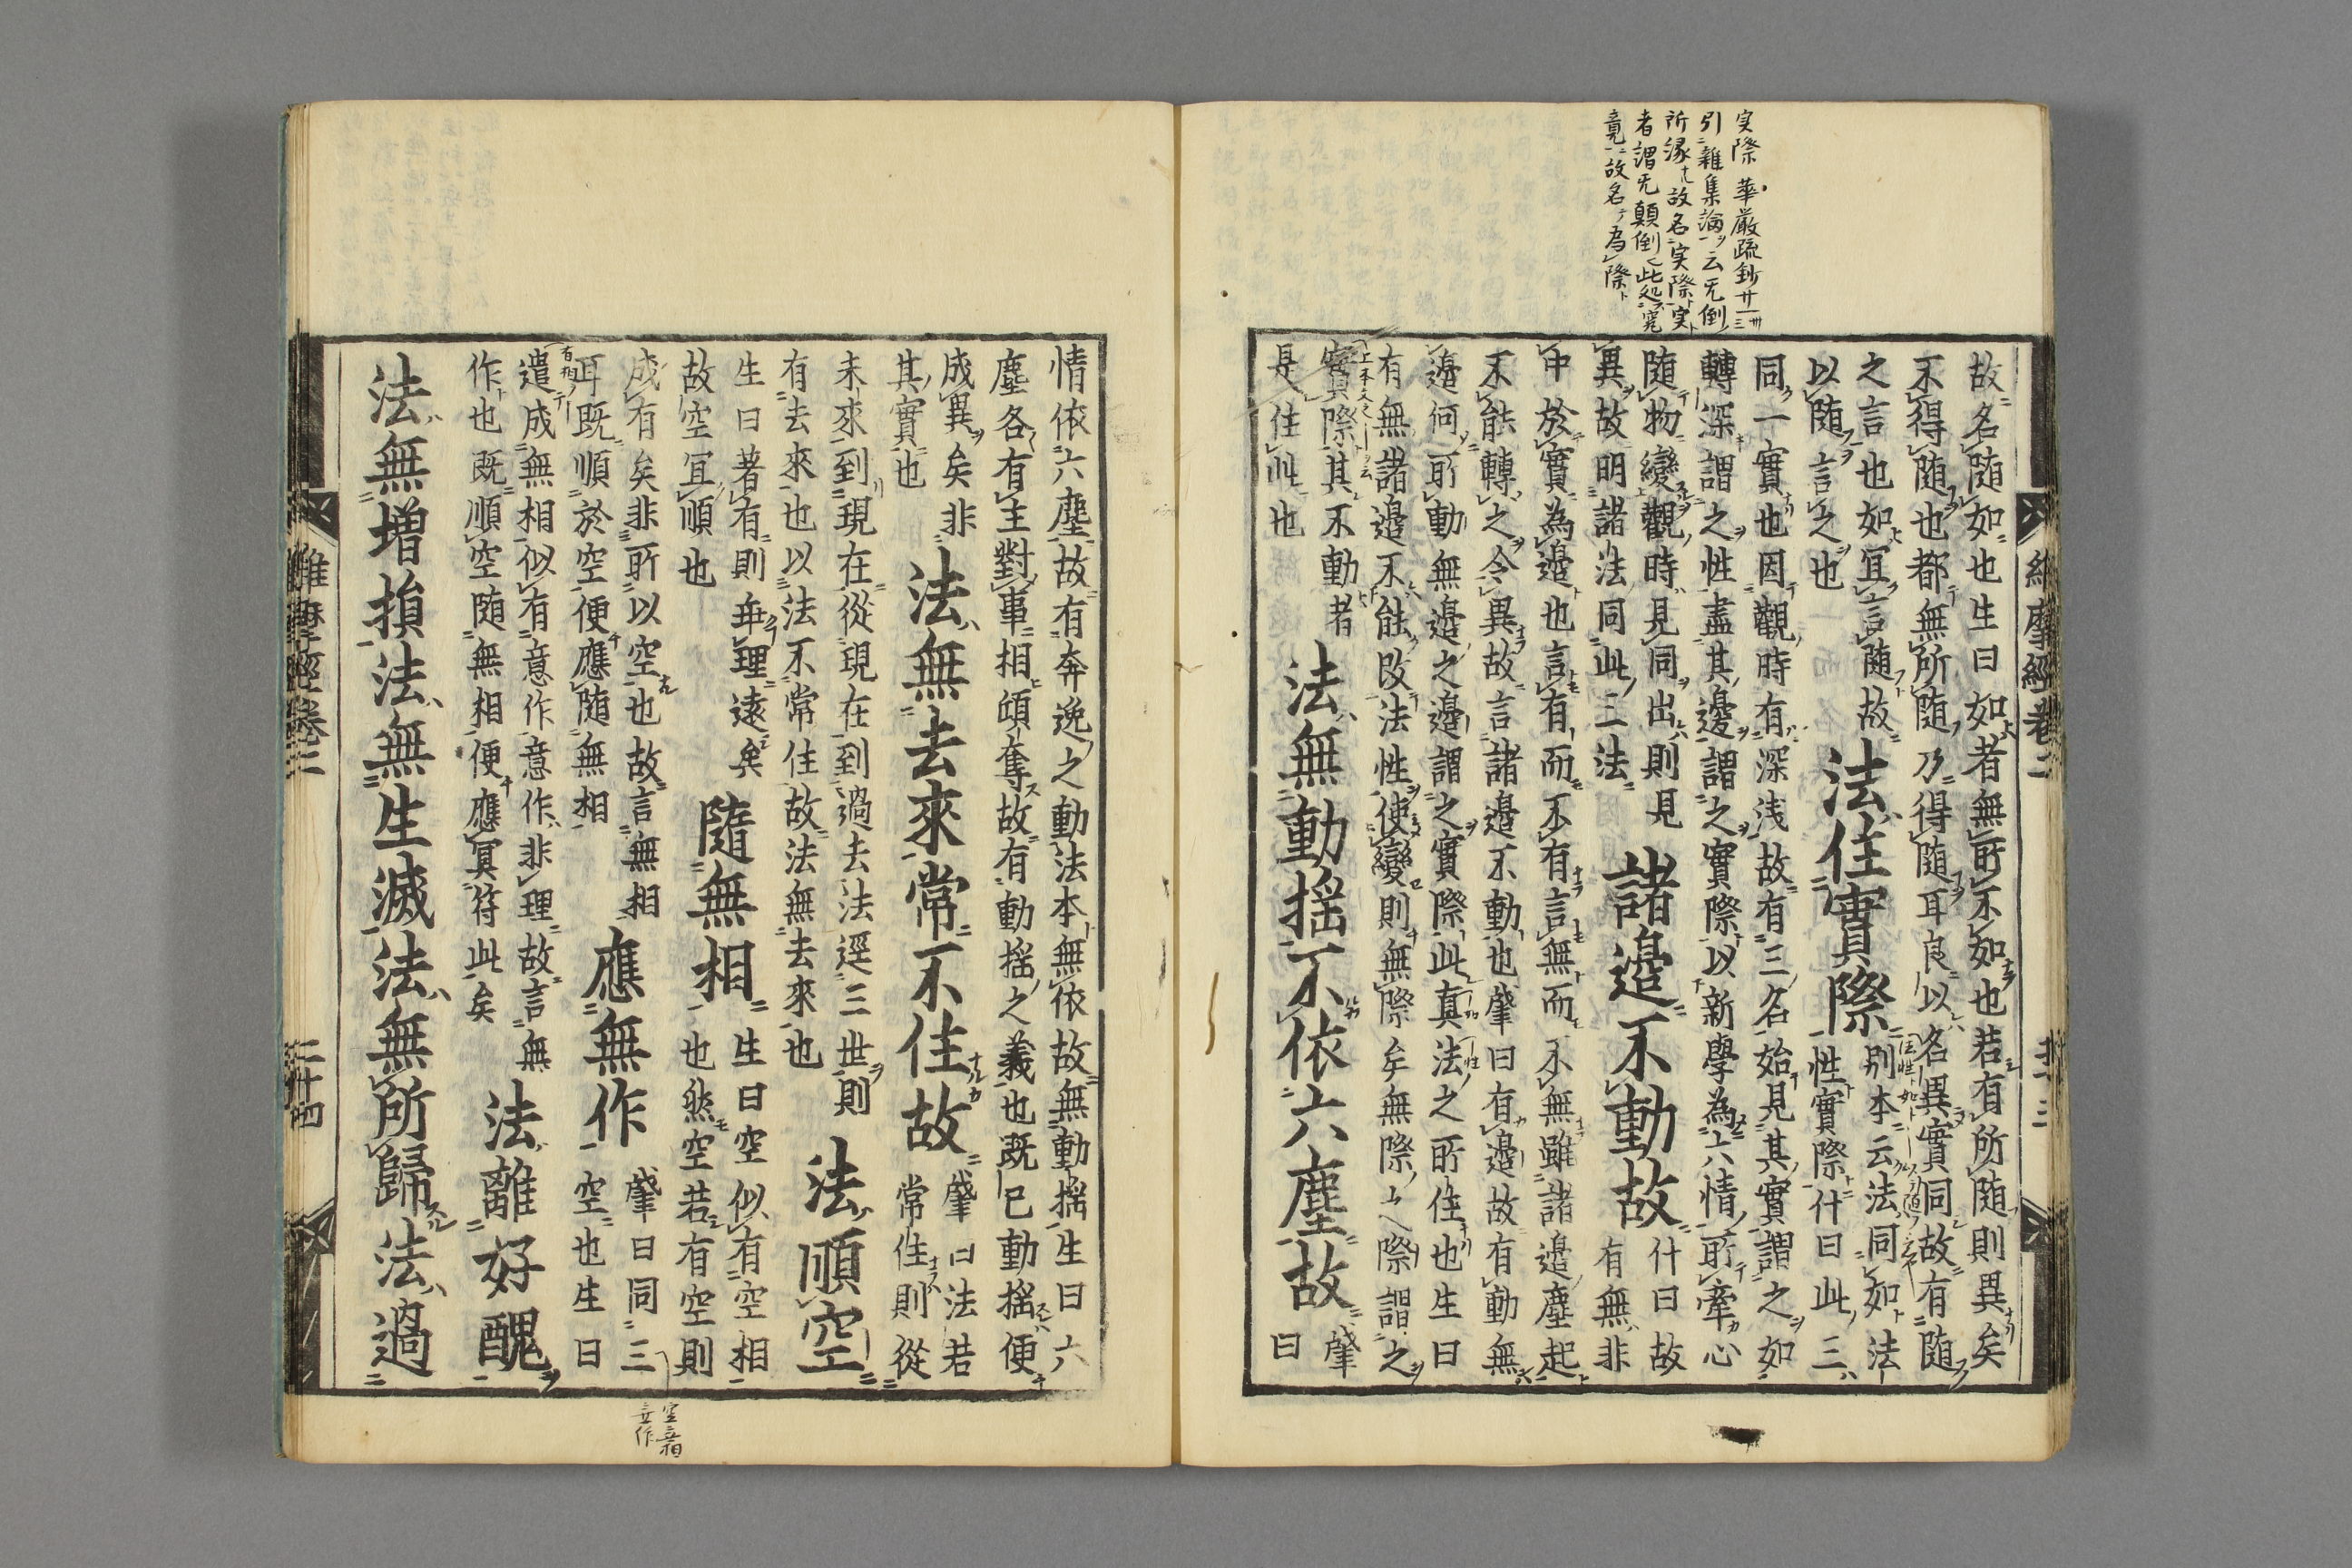 実際 華厳疏鈔廿一
引雜集論云无倒
所縁故名実際実
者謂无顛倒此処究
竟故名為際
維摩經卷二
故名随如也生曰如者無所不如也若有所随則異矣
不得随也都無所随乃得随耳良以名異實同故有随
之言也如冝言随故
以随言之也
法住實際
別本云法同如法
性實際什曰此三
同一實也因觀時有深浅故有三名始見其實謂之如
轉深謂之性盡其邊謂之實際以新學為六情所牽心
随物變觀時見同出則見
異故明諸法同此三法
諸邊不動故
什曰故
有無非
中於實為邊也言有而不有言無而不無雖諸邊塵起
不能轉之令異故言諸邊不動也肇曰有邊故有動無
邊何所動無邊之邊謂之實際此真法之所住也生曰
有無諸邊不能改法性使變則無際矣無際之際謂之
實際其不動者
是住此也
法無動揺不依六塵故
肇
曰
情依六塵故有奔逸之動法本無依故無動揺生曰六
塵各有主對事相傾奪故有動揺之義也既已動揺便
成異矣非
其實也
法無去來常不住故
肇曰法若
常住則從
未來到現在從現在到過去法逕三世則
有去來也以法不常住故法無去來也
法順空
生曰著有則乖理遠矣
故空冝順也
隨無相
生曰空似有空相
也然空若有空則
成有矣非所以空也故言無相
耳既順於空便應随無相
應無作
肇曰同三
空也生曰
遣成無相似有意作意作非理故言無
作也既順空随無相便應冥符此矣
法離好醜
法無増損法無生滅法無所歸法過
維摩經卷二
二十四
空無相
無作